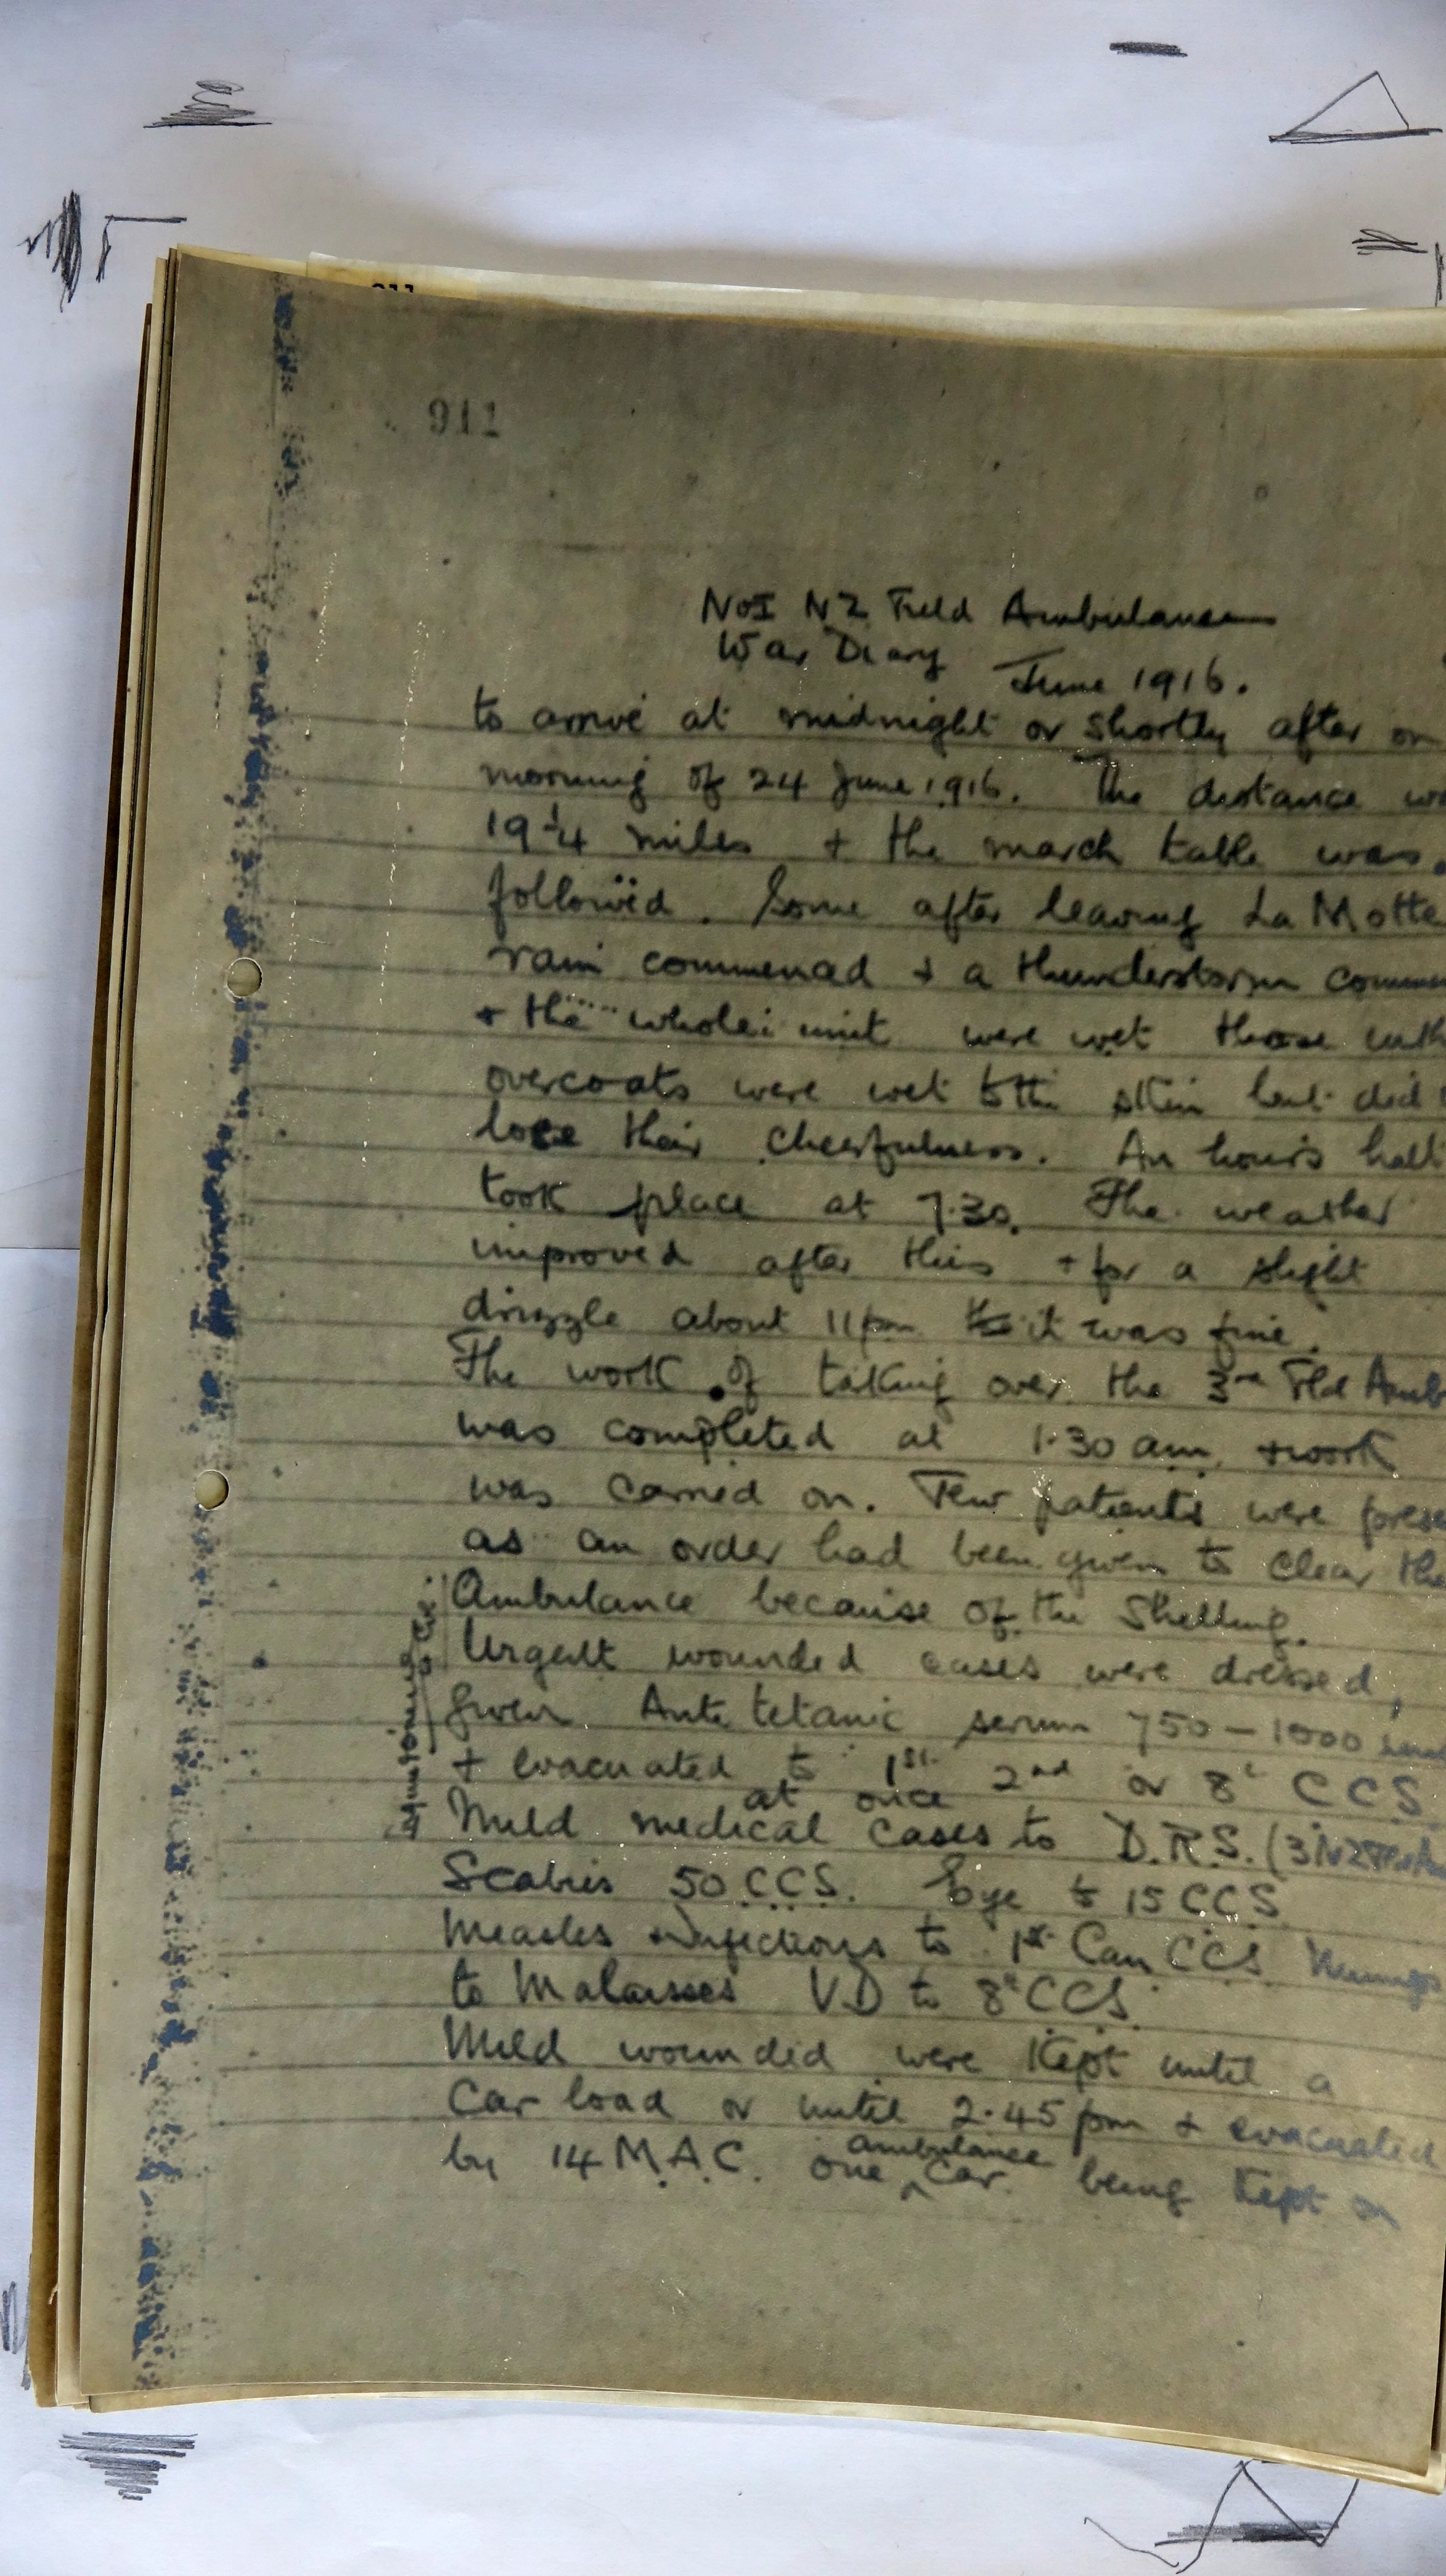 911
No I NZ Field Ambulance
War Diary June 1916.
to arrive at midnight or shortly after on
morning of 24 June 1916. The distance
19 1/4 miles + the march table was
followed. Some after leaving La Motte
rain commenced + a thunderstorm
+ the whole unit were wet those
overcoats were wet to the skin but did
lose their cheerfulness. An hour's halt
took place at 7.30. The weather
improved after this + for a slight
drizzle about 11 pm it was fine.
The work of taking over the 3rd Fld Amb
was completed at 1.30 am. + work
was carried on. Few patients were
as an order had been given to clear the
Ambulance because of the Shelling.
Urgent wounded cases were dressed,
given Ante tetanic serum 750 - 1000
+ evacuated to 1st 2nd or 8th CCS.
at once
Mild medical cases to D.R.S. (3 NZ
Scabies 50 CCS. Eye to 15 CCS
Measles + Infectious to 1st Can CCS
to Malassises VD to 8th CCS.
Mild wounded were kept until a
Car load or until 2.45 pm + evacuated
by 14 M.A.C. one ambulance Car being kept on